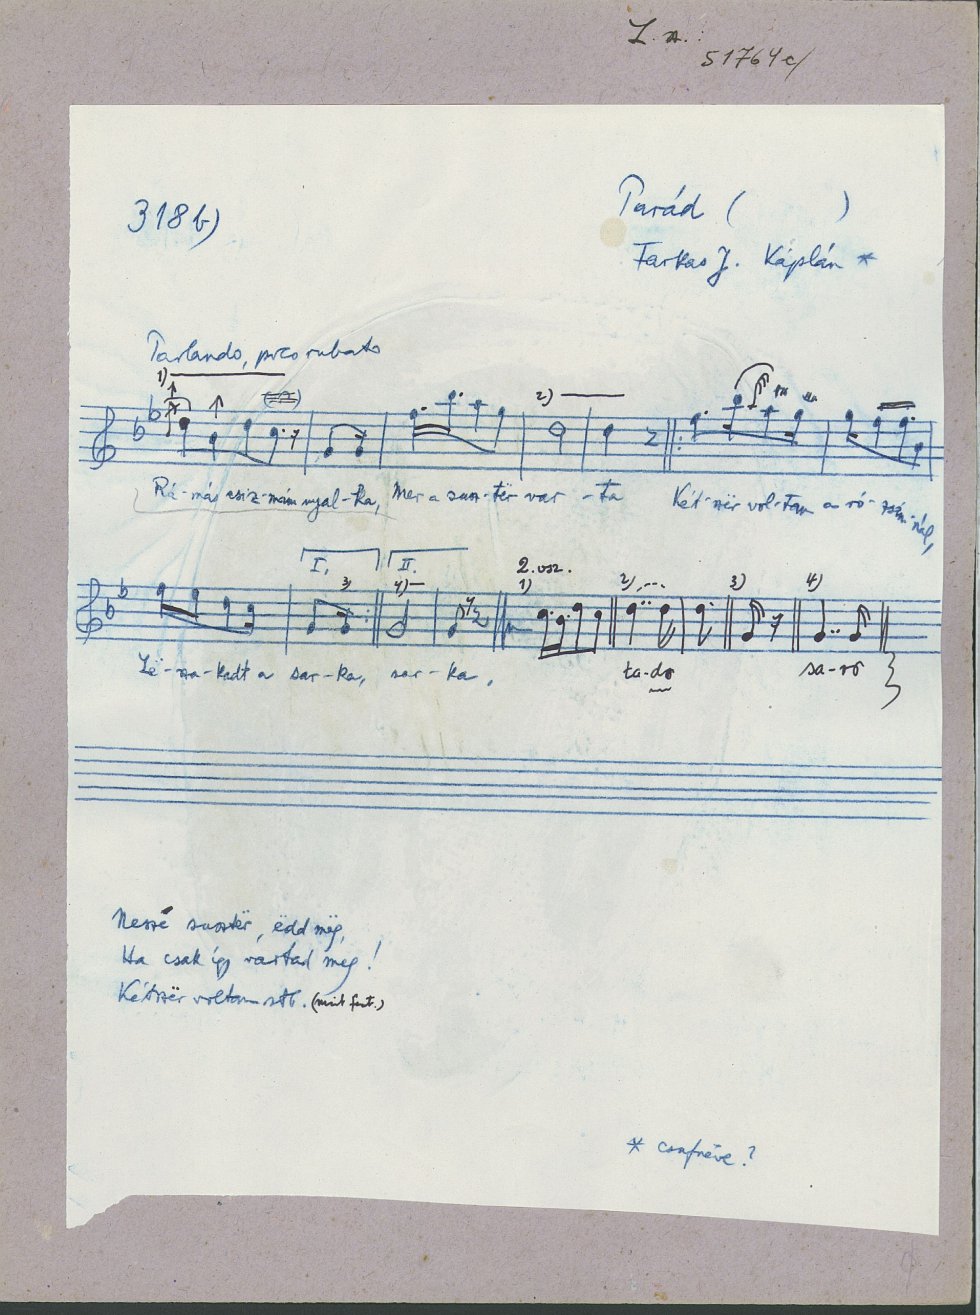 L. sz.:
51764c/
318 b)
Parád (          )
Farkas J. Káplán *
Parlando, poco rubato
1)
2)
Rá-más csiz-mám nyal-ka, Mer a susz-tër var-ta Két-szër vol-tam a ró-zsám-nál,
I. 3) II. 4) 2. vsz. 1) 2) 3) 4)
Lë-sza-kadt a sar-ka, sar-ka, ta-do sa-ro
Nessé susztër, ëdd mëg,
Ha csak így vartad mëg!
Kétszër voltam stb. (mint fent.)
* csúfnéve?